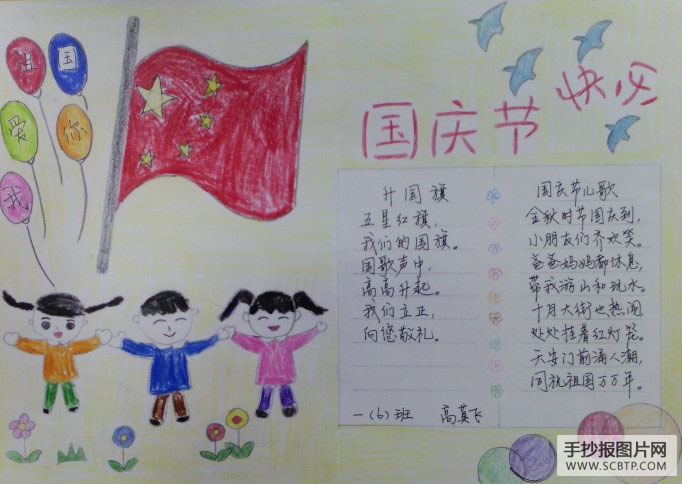 祖国
爱你
我
国庆节快乐
升国旗
五星红旗，
我们的国旗。
国歌声中，
高高升起。
我们立正，
向您敬礼。
一（6）班 高英飞
国庆节儿歌
金秋时节国庆到，
小朋友们齐欢笑。
爸爸妈妈都休息，
带我游山和玩水。
十月大街也热闹
处处挂着红灯笼。
天安门前涌人潮，
同祝祖国万万年。
手抄报图片网
WWW.SCBTP.COM